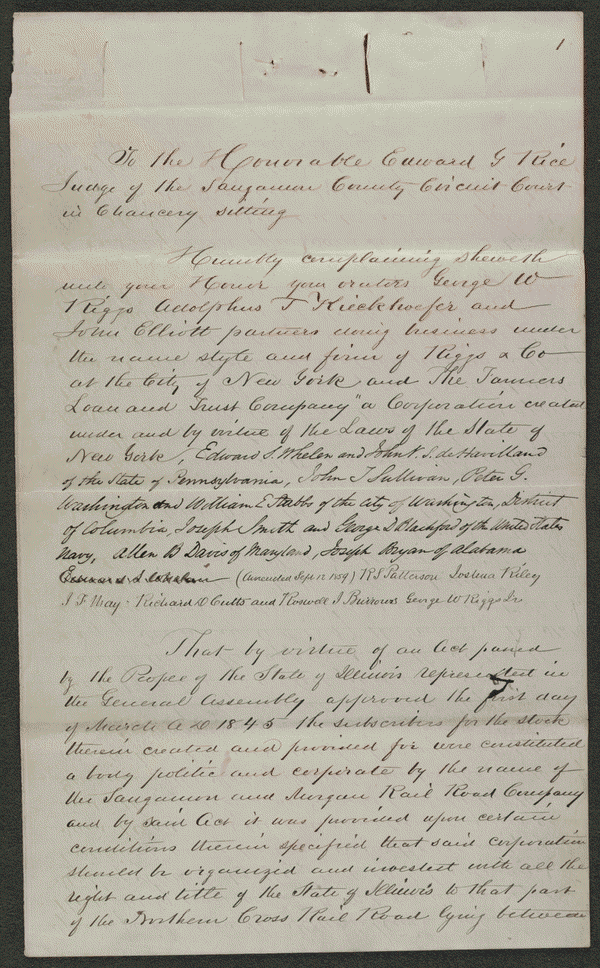 1
To the Honorable Edward G Rice
Judge of the Sangamon County Circuit Court
in Chancery sitting
Humbly complaining sheweth
unto your Honor your orators George W
Riggs Adolphus T Kieckhoefer and
John Elliott partners doing business under
the name style and firm of Riggs & Co
at the City of New York and The Farmers
Loan and Trust Company" a Corporation created
under and by virtue of the Laws of the State of
New York, Edward S. Whelen and John V. S. de Havilland
of the State of Pennsylvania, John T Sullivan, Peter G.
Washington and William E Stubbs of the City of Washington, District
of Columbia, Joseph Smith and George S Blackford of the United States
Navy, Allen B Davis of Maryland, Joseph Bryan of Alabama
Edward S Whelen (Amended Sept. 12 1859) R S Patterson Joshua Riley
J F May Richard D Cutts and Roswell J Burrows George W Riggs Jr
That by virtue of an Act passed
by the People of the State of Illinois represented in
the General Assembly approved the first day
of March A D 1845 the subscribers for the stock
therein created and provided for were constituted
a body politic and corporate by the name of
the Sangamon and Morgan Rail Road Company
and by said Act it was provided upon certain
conditions therein specified that said corporation
should be organized and invested with all the
right and title of the State of Illinois to that part
of the Northern Cross Rail Road lying between